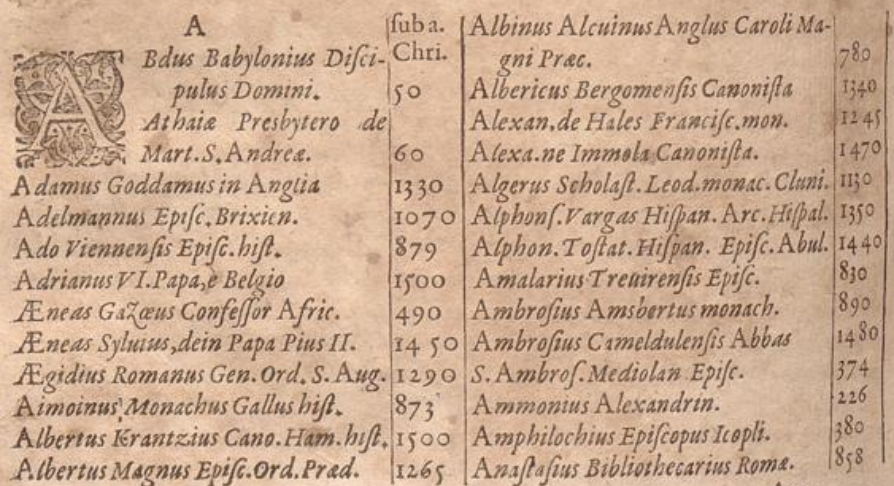 A
ſub a.
Bdus Babylonius Diſci- Chri.
pulus Domini. 50
Athaiæ Presbytero de
Mart. S. Andreæ. 60
Adamus Goddamus in Anglia 1330
Adelmannus Epiſc. Brixien. 1070
Ado Viennenſis Epiſc. hiſt. 879
Adrianus VI. Papa, e Belgio 1500
Æneas Gazœus Confeſſor Afric. 490
Æneas Syluius, dein Papa Pius II. 1450
Ægidius Romanus Gen. Ord. S. Aug. 1290
Aimoinus, Monachus Gallus hiſt. 873
Albertus Krantzius Cano. Ham. hiſt. 1500
Albertus Magnus Epiſc. Ord. Præd. 1265
Albinus Alcuinus Anglus Caroli Ma-
gni Præc. 780
Albericus Bergomenſis Canoniſta 1340
Alexan. de Hales Franciſc. mon. 1245
Alexa. ne Immola Canoniſta. 1470
Algerus Scholaſt. Leod. monac. Cluni. 1130
Alphonſ. Vargas Hiſpan. Arc. Hiſpal. 1350
Alphon. Toſtat. Hiſpan. Epiſc. Abul. 1440
Amalarius Treuirenſis Epiſc. 830
Ambroſius Amsbertus monach. 890
Ambroſius Cameldulenſis Abbas 1480
S. Ambroſ. Mediolan Epiſc. 374
Ammonius Alexandrin. 226
Amphilochius Epiſcopus Icopli. 380
Anaſtaſius Bibliothecarius Romæ. 858